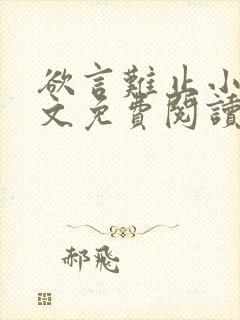 欲言難止小
文免費閱讀
郝飛